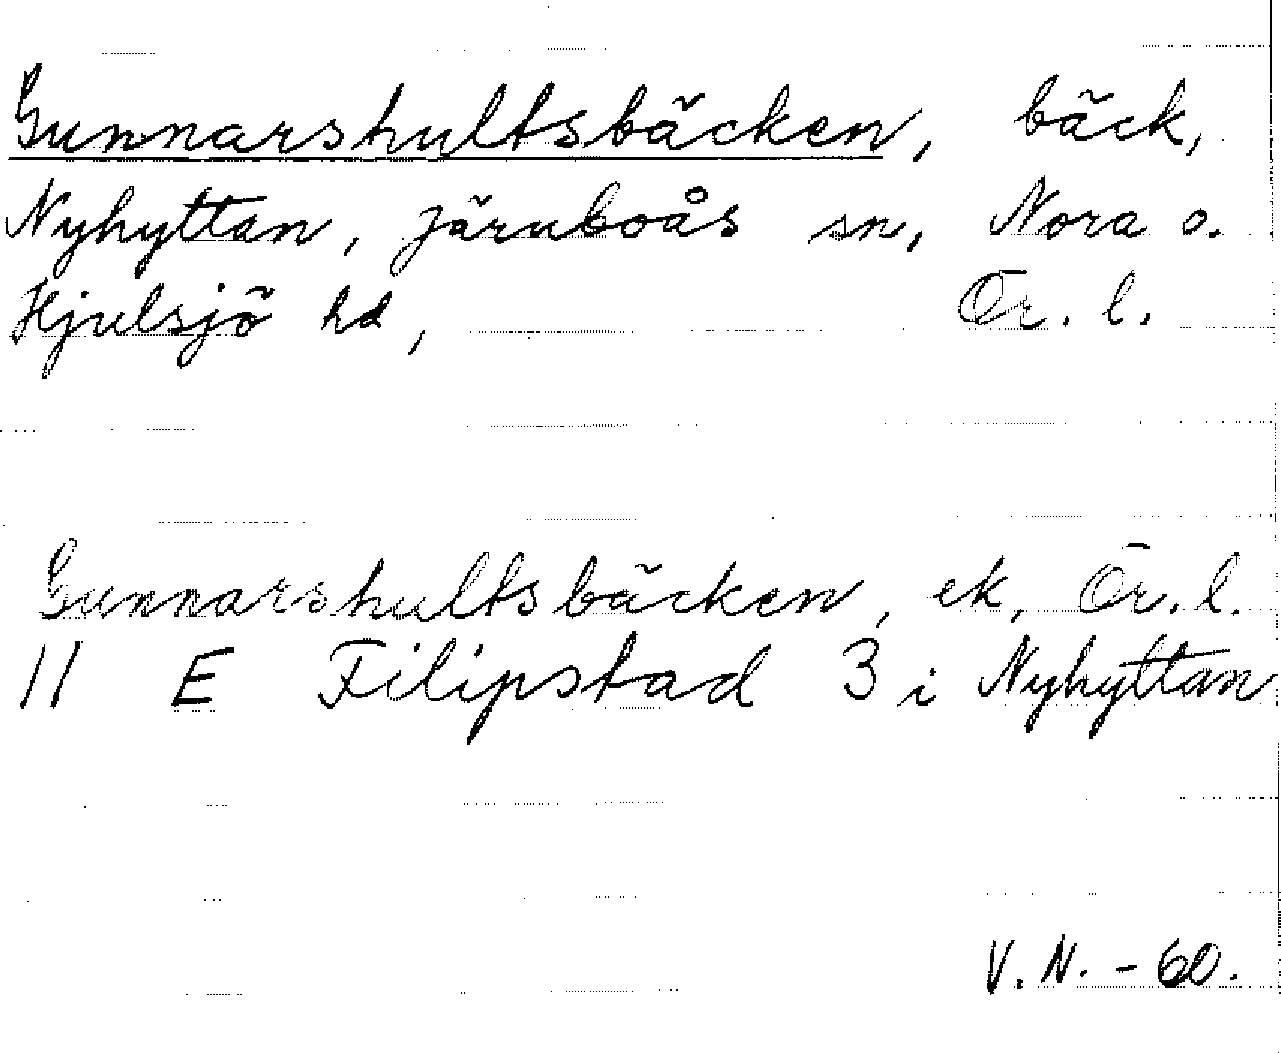 Gunnarshultsbäcken, bäck,
Nyhyttan, Järnboås sn, Nora o.
Hjulsjö hd, Ör. l.
Gunnarshultsbäcken, ek, Ör. l.
11 E Filipstad 3 i Nyhyttan
V. N. - 60.